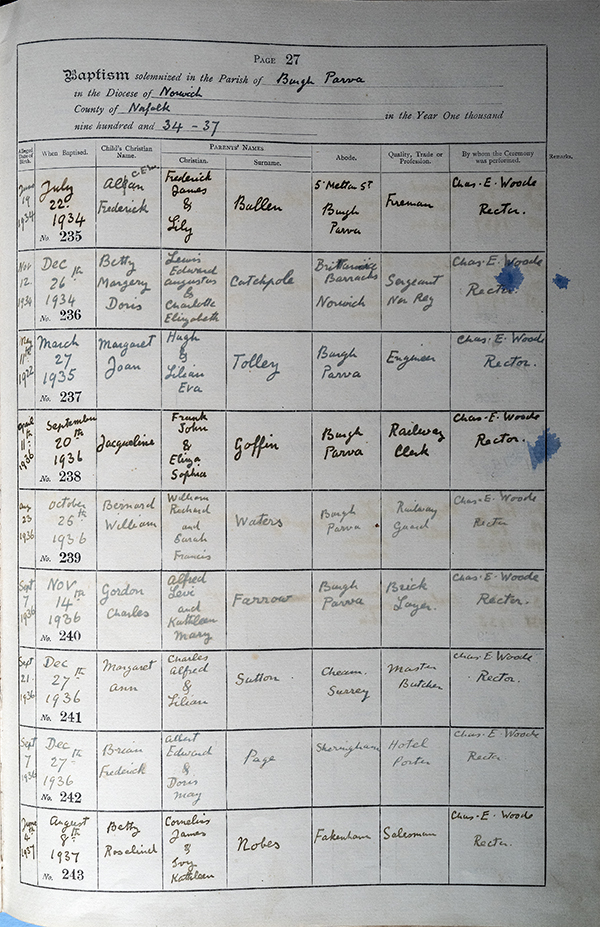 PAGE 27
Baptism solemnized in the Parish of Burgh Parva
in the Diocese of Norwich
County of Norfolk in the Year One thousand
nine hundred and 34 - 37
When Baptised. Child's Christian Name. PARENTS' NAMES Christian. Surname. Abode. Quality, Trade or Profession. By whom the Ceremony was performed. Remarks.
June 19 1934
July 22 1934
No. 235
Allan
C.E.W.
Frederick
Frederick
James
&
Lily
Bullen
5 Melton St
Burgh
Parva
Fireman
Chas. E. Woode
Rector.
Nov 12 1934
Dec 26th 1934
No. 236
Betty
Margery
Doris
Lewis
Edward
Augustus
&
Charlotte
Elizabeth
Catchpole
Brittania
Barracks
Norwich
Sergeant
Nor Reg
Chas. E. Woode
Rector.
May 11th 1922
March 27 1935
No. 237
Margaret
Joan
Hugh
&
Lilian
Eva
Tolley
Burgh
Parva
Engineer
Chas. E. Woode
Rector.
April 11th 1936
September 20th 1936
No. 238
Jacqueline
Frank
John
&
Eliza
Sophia
Goffin
Burgh
Parva
Railway
Clerk
Chas. E. Woode
Rector.
Aug 23 1936
October 25th 1936
No. 239
Bernard
William
William
Richard
and
Sarah
Francis
Waters
Burgh
Parva
Railway
Guard
Chas. E. Woode
Rector
Sept 7 1936
Nov 14th 1936
No. 240
Gordon
Charles
Alfred
Levi
and
Kathleen
Mary
Farrow
Burgh
Parva
Brick
Layer.
Chas. E. Woode
Rector.
Sept 21 1936
Dec 27th 1936
No. 241
Margaret
Ann
Charles
Alfred
&
Lilian
Sutton
Cheam.
Surrey
Master
Butcher
Chas. E. Woode
Rector.
Sept 7 1936
Dec 27th 1936
No. 242
Brian
Frederick
Albert
Edward
&
Doris
May
Page
Sheringham
Hotel
Porter
Chas. E. Woode
Rector
June 1937
August 8th 1937
No. 243
Betty
Rosalind
Cornelius
James
&
Ivy
Kathleen
Nobes
Fakenham
Salesman
Chas. E. Woode
Rector.